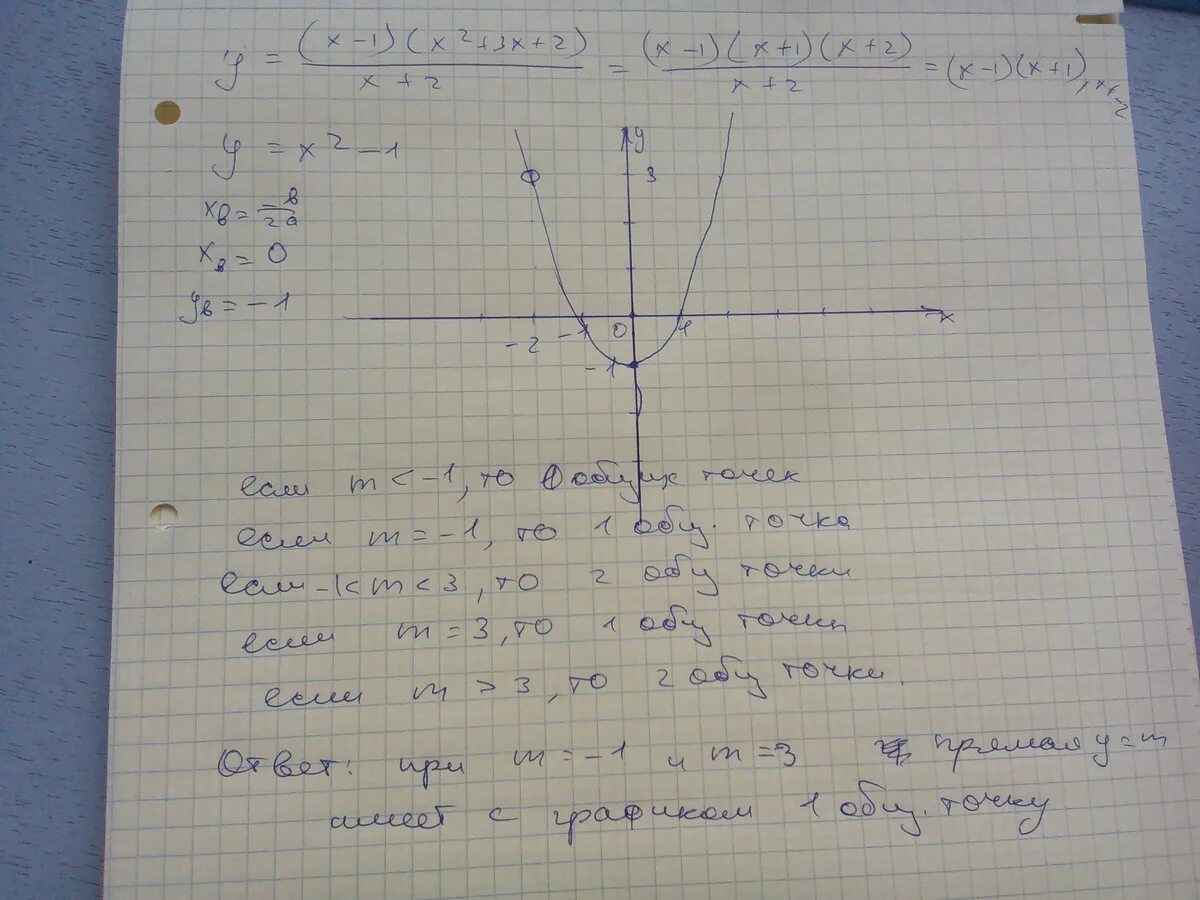 y = (x-1)(x²+3x+2) / x+2 = (x-1)(x+1)(x+2) / x+2 = (x-1)(x+1), x≠-2
y = x² - 1
xв = -в / 2a
xв = 0
yв = -1
y
3
-2 -1 0 1 x
-1
если m < -1, то 0 общих точек
если m = -1, то 1 общ. точка
если -1 < m < 3, то 2 общ точки
если m = 3, то 1 общ точки
если m > 3, то 2 общ точки.
Ответ: при m = -1 и m = 3 прямая y = m
имеет с графиком 1 общ. точку